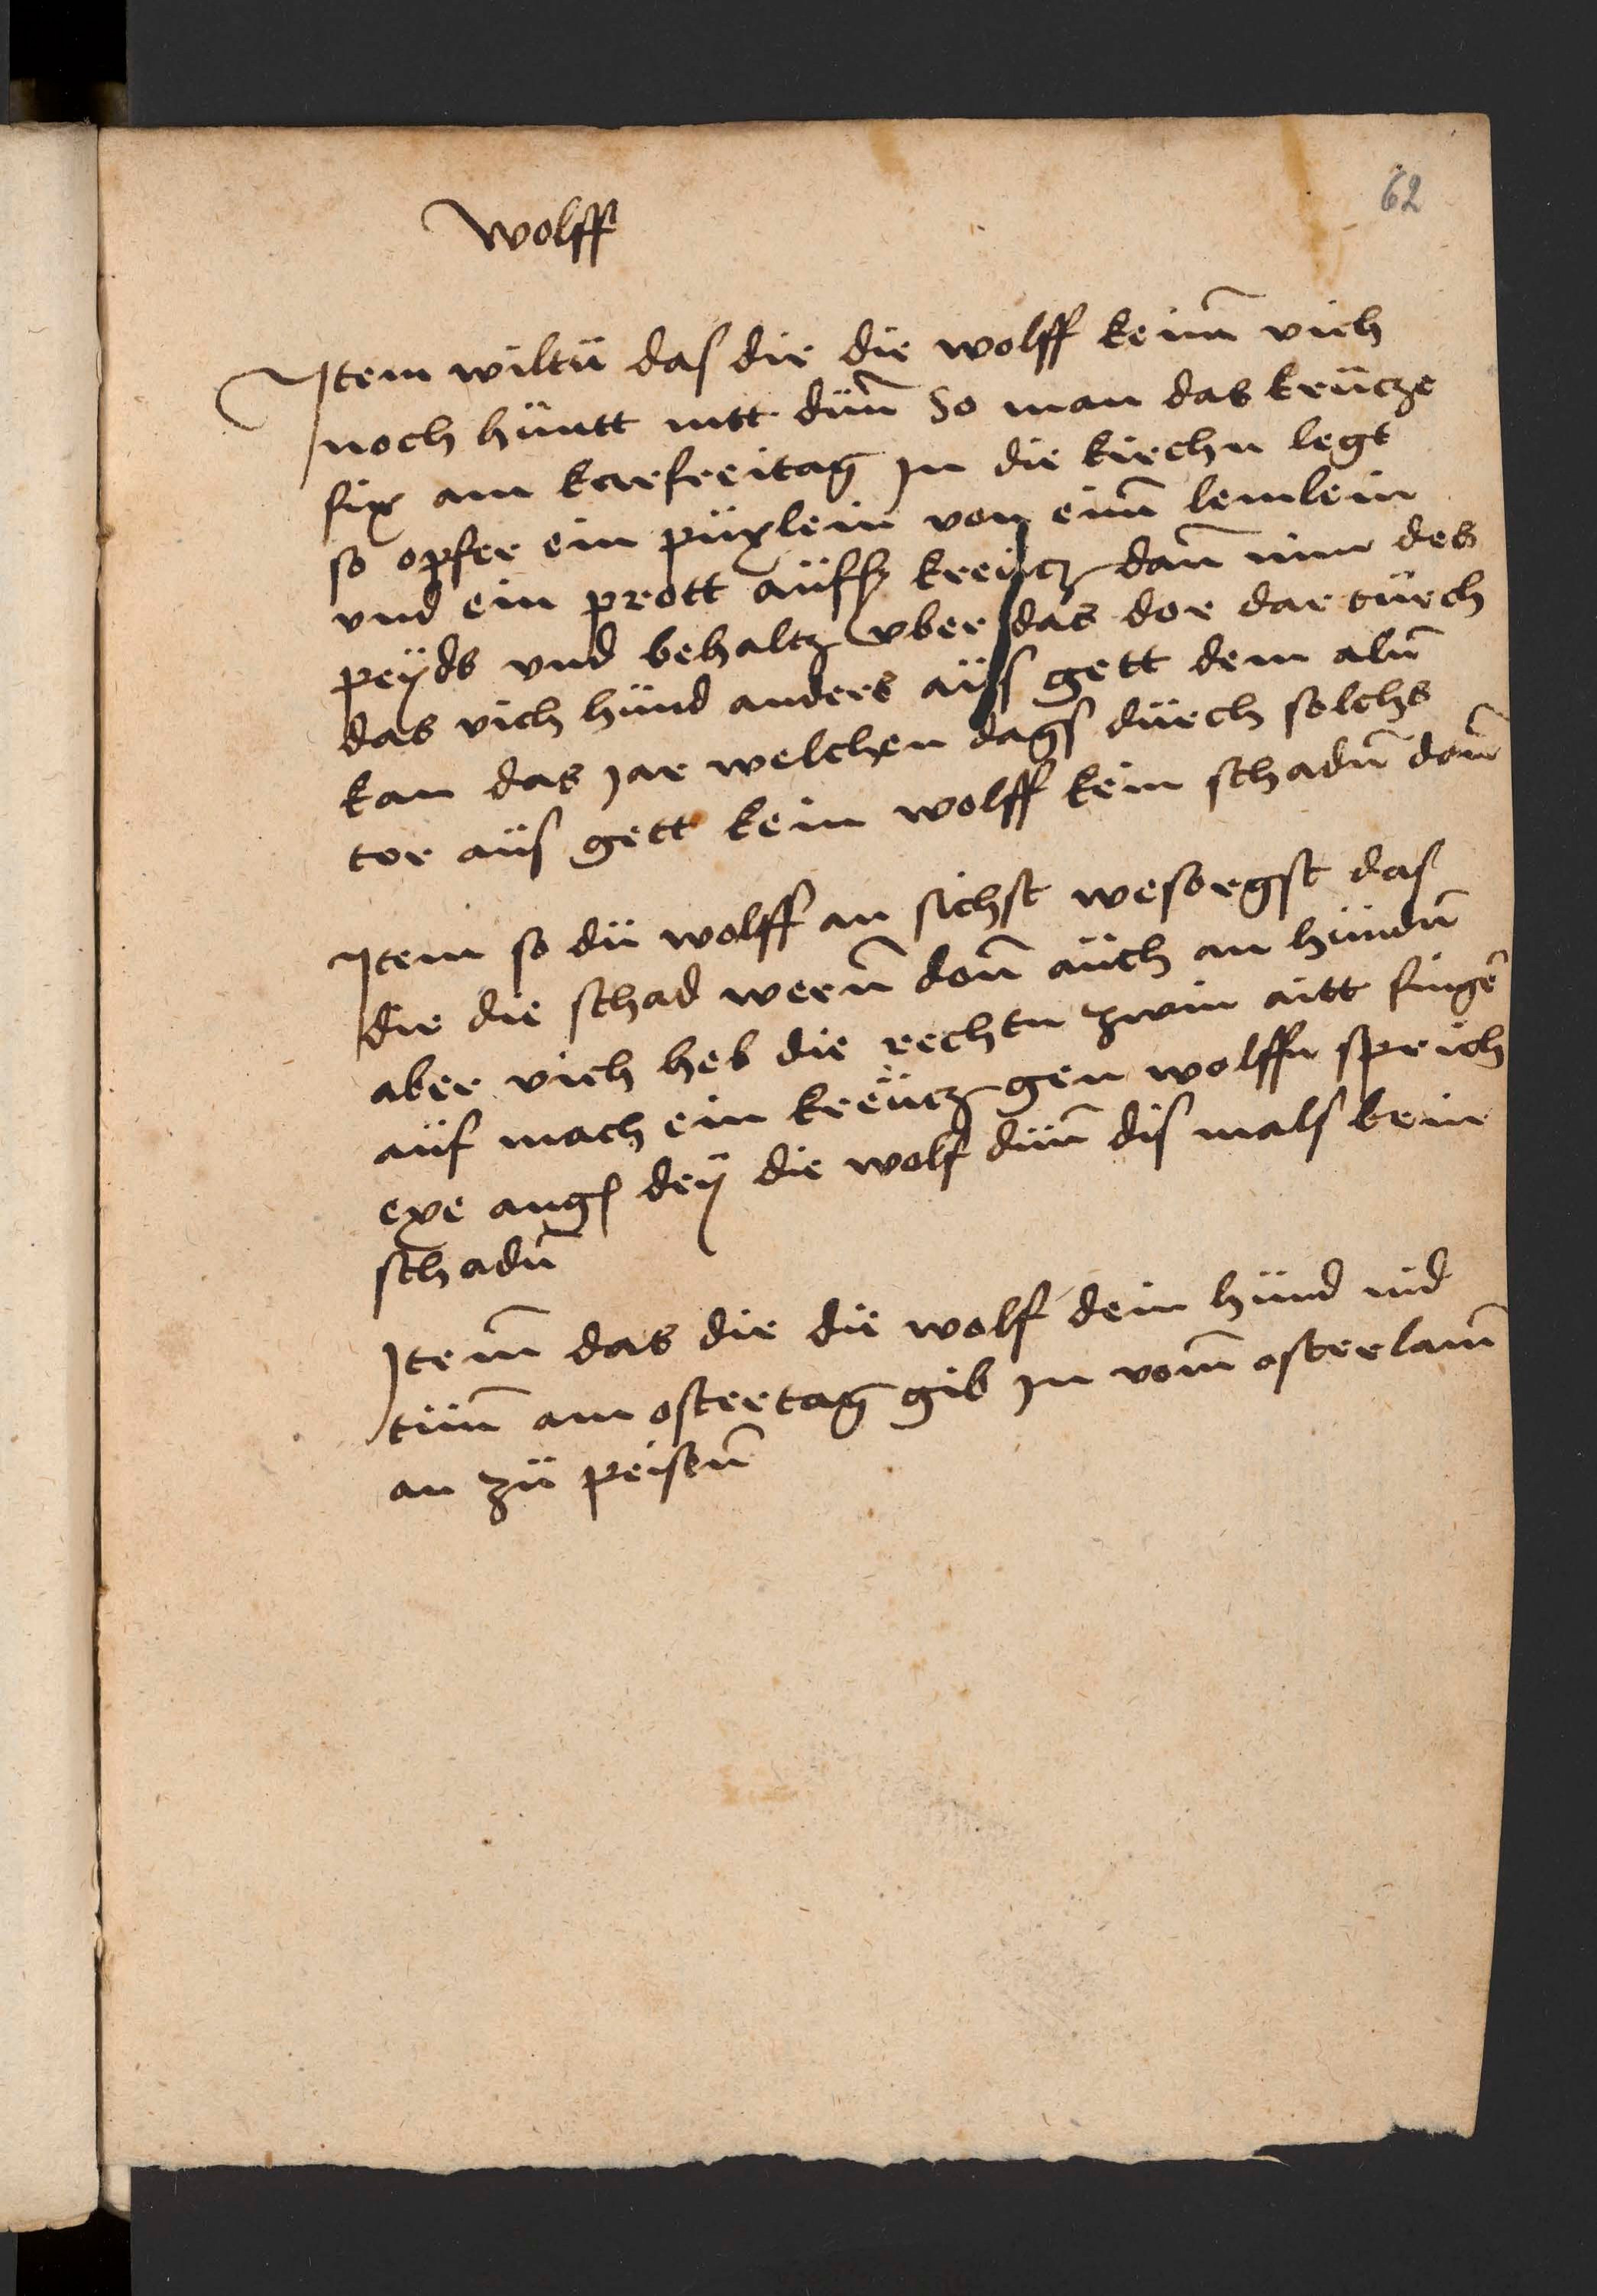 62
wolff
Item wiltü das dir die wolff keinn̄ vich
noch hüntt nitt dünn̄ So man das krücze
fix am karfreitag Jn die kirchn legt
so opfer ein püxlein von einn̄ lemlein
vnd ein prott aüfs kreücz dan̄ nim des
peyds vnd behaltz vber das dor dar dürch
das vich hünd anders aüss gett dem aln̄
kan das Jar welchen dags dürch solchs
tor aüs gett kein wolff kein schadn̄ don̄
Item so dü wolff an sichst wesorgst das
dir die schad wern̄ don̄ aüch an hündn̄
aber vich heb die rechtn zwin fingē
aüf mach ein kreücz gen wolffn sprich
die wolf dün̄ dis mals kein
schadn̄
Item̄ das dir die wolf dein hünd nid
tün̄ am ostertag gib Jn vom̄ osterlam̄
an zü peisen̄